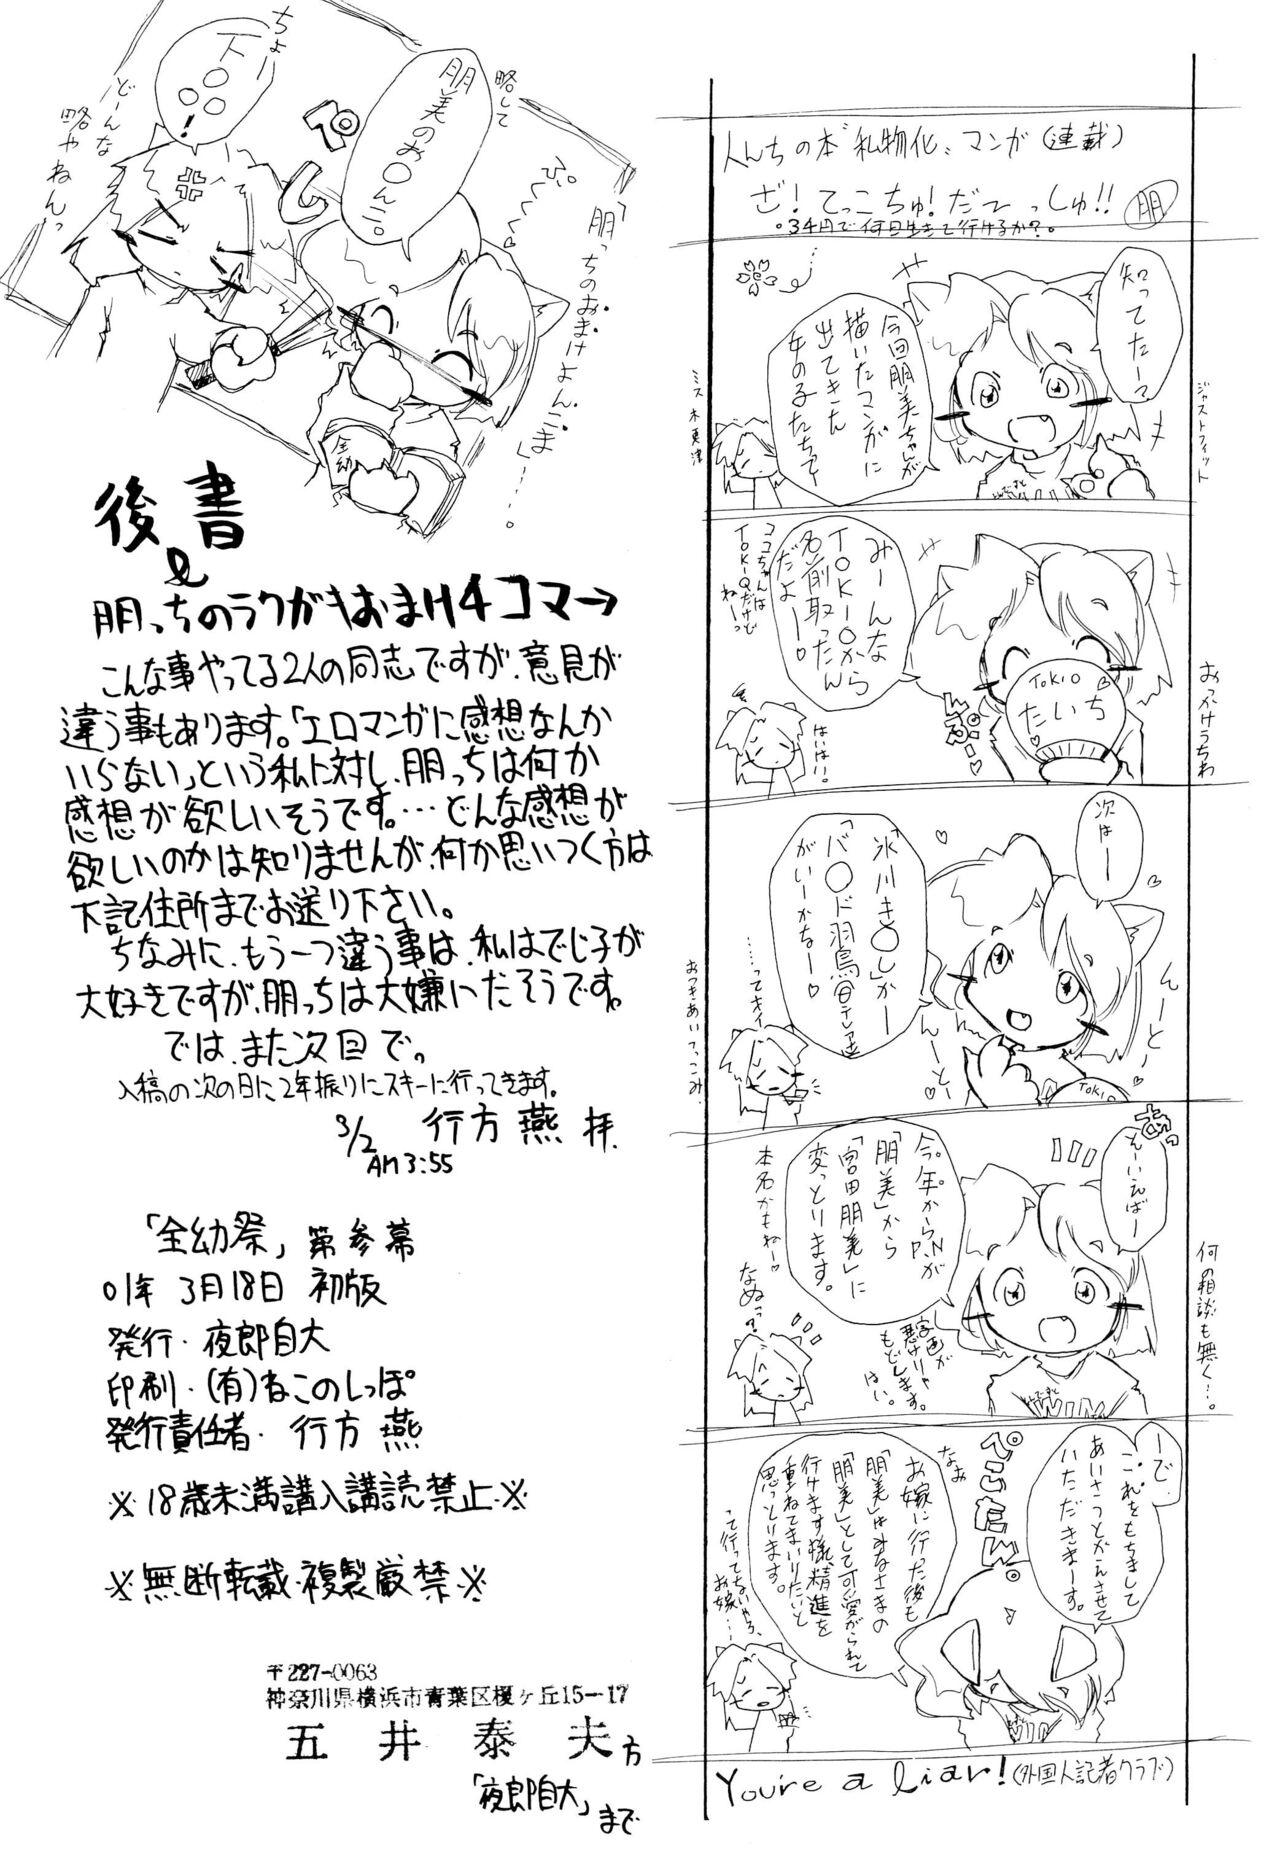 ちょー
T○○○!
どーんな
略やねんっ
略して
朋美のお○んこ。
ぷ
し
ぷくくく…
「朋っちのおまけよんこま」……。
全幼
後書
と
朋っちのラクガキおまけ4コマ→
こんな事やってる2人の同志ですが、意見が
違う事もあります。「エロマンガに感想なんか
いらない」という私に対し、朋っちは何か
感想が欲しいそうです。…どんな感想が
欲しいのかは知りませんが、何か思いつく方は
下記住所までお送り下さい。
ちなみに、もう一つ違う事は、私はでじ子が
大好きですが、朋っちは大嫌いだそうです。
では、また次回で。
入稿の次の日に2年振りにスキーに行ってきます。
3/2 行方 燕 拝.
AM3:55
「全幼祭」第参幕
01年 3月18日 初版
発行・夜郎自大
印刷・(有)ねこのしっぽ
発行責任者・行方 燕
※18歳未満講入講読禁止※
※無断転載・複製厳禁※
〒227-0063
神奈川県横浜市青葉区榎ヶ丘15-17
五井泰夫方
「夜郎自大」まで
人んちの本"私物化"マンガ(連載)
ざ!てっこちゅ!だーっしゅ!! 朋
。34円で何日生きて行けるか?。
知ってたー?
今回朋美ちゃんが
描いたマンガに
出てきた
女の子たちって
ジャストフィット
ミス木更津
みーんな
TOKIOから
名前取ったん
だよー♡
ココちゃんは
TOKI-Qだけど
ねーっ
TOKIO
たいち
ぷぷー♡
はいはい。
おっかけうちわ
次はー
「氷川き○し」か
「バ○ド羽鳥」
がいーかなー♡
んーとー
んーとー
TOKIO
おつきあいてっこみ
あっ
そーいえばー
今年からP.Nが
「朋美」から
「宮田朋美」に
変っとります。
本名かもねー♡
なぬっ?
何の相談も無く…。
もどします。
はい。
ーで、
これをもちまして
あいさつとかえさせて
いただきまーす。
ぺこたん。
なお
お嫁に行った後も
「朋美」はみなさまの
「朋美」として可愛がられて
行けます様、精進を
重ねてまいりたいと
思っとります。
って行ってないやろ、
お嫁……
You're a liar!(外国人記者クラブ)